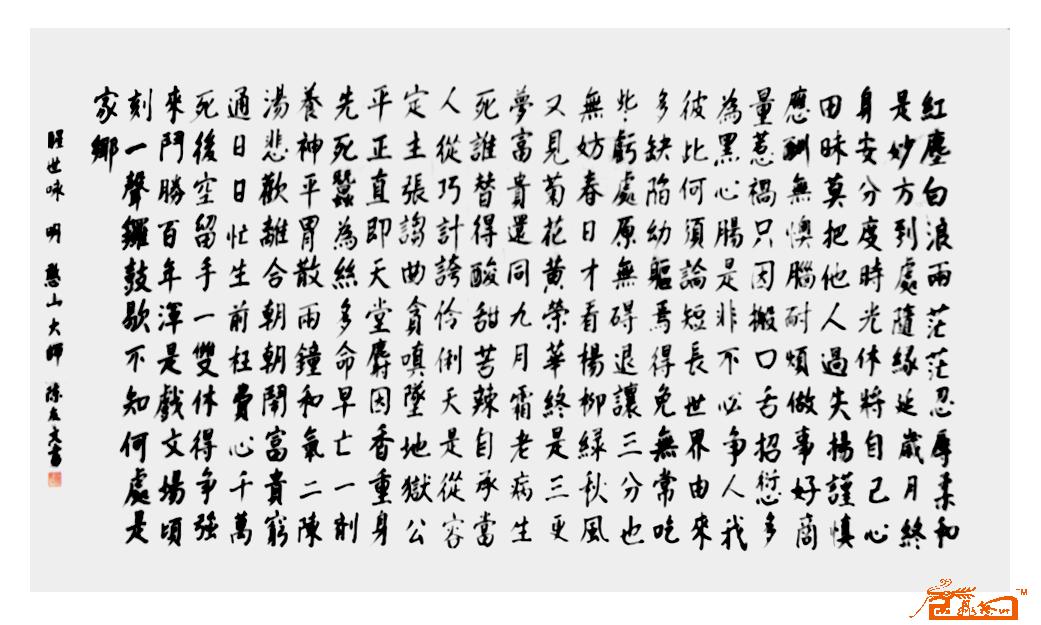 紅塵白浪兩茫茫忍辱柔和
是妙方到處隨緣延歲月終
身安分度時光休將自己心
田昧莫把他人過失揚謹慎
應酬無懊腦耐煩做事好商
量惹禍只因搬口舌招愆多
為黑心腸是非不必爭人我
彼此何須論短長世界由來
多缺陷幼軀焉得免無常吃
些虧處原無碍退讓三分也
無妨春日才看楊柳綠秋風
又見菊花黄榮華終是三更
夢富貴還同九月霜老病生
死誰替得酸甜苦辣自承當
人從巧計誇伶俐天是從容
定主張謟曲貪嗔墜地獄公
平正直即天堂麝因香重身
先死蠶為絲多命早亡一劑
養神平胃散兩鐘和氣二陳
湯悲歡離合朝朝鬧富貴窮
通日日忙生前枉費心千萬
死後空留手一雙休得争強
來鬥勝百年渾是戲文場頃
刻一聲鑼鼓歇不知何處是
家鄉
醒世咏 明 憨山大師 陳友文書